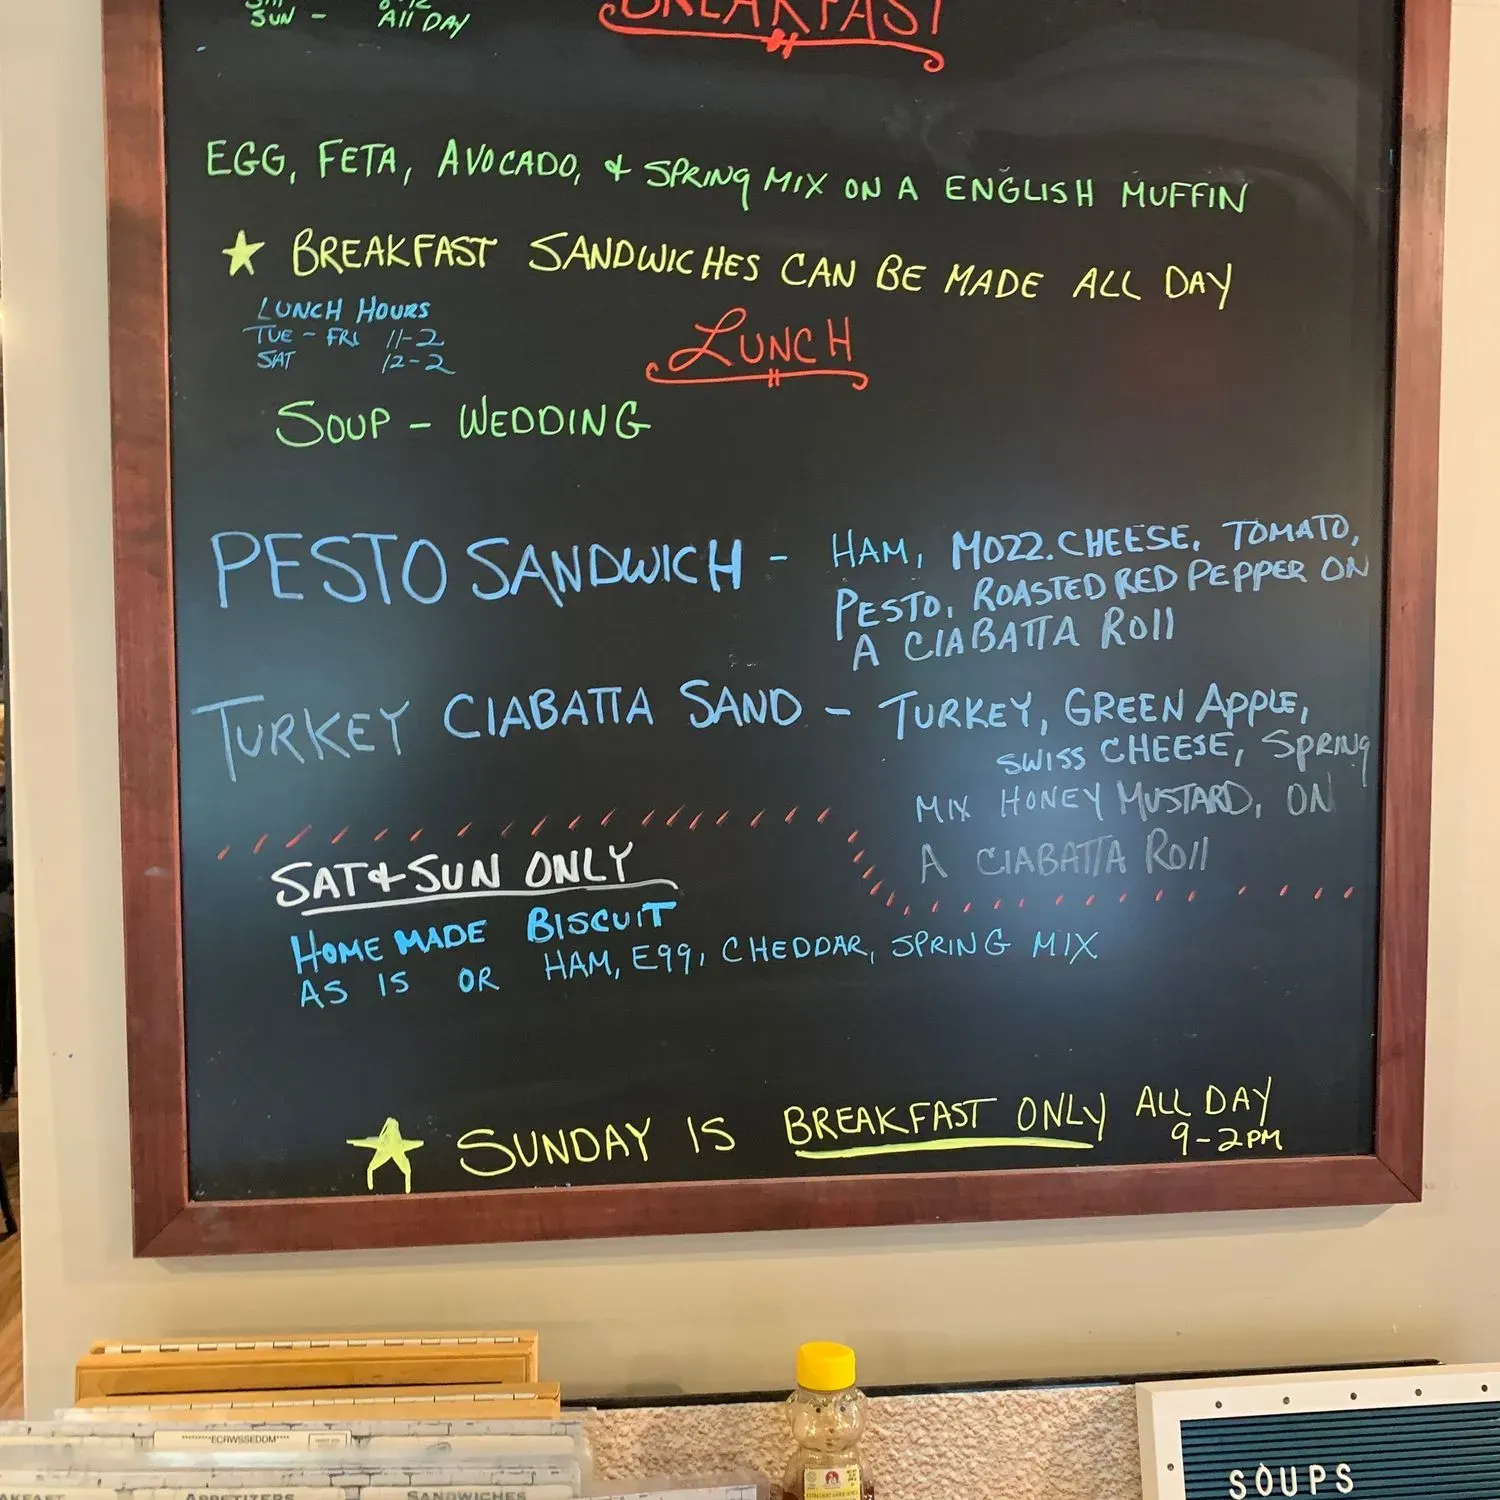 SUN - All DAY
BREAKFAST
EGG, FETA, AVOCADO, & SPRING MIX ON A ENGLISH MUFFIN
★ BREAKFAST SANDWICHES CAN BE MADE ALL DAY
LUNCH HOURS
TUE - FRI 11-2
SAT 12-2
LUNCH
SOUP - WEDDING
PESTO SANDWICH - HAM, MOZZ. CHEESE, TOMATO,
PESTO, ROASTED RED PEPPER ON
A CIABATTA Roll
TURKEY CIABATTA SAND - TURKEY, GREEN APPLE,
SWISS CHEESE, SPRING
MIX HONEY MUSTARD, ON
A CIABATTA Roll
SAT & SUN ONLY
HOME MADE BISCUIT
AS IS OR HAM, Egg, CHEDDAR, SPRING MIX
★ SUNDAY IS BREAKFAST ONLY ALL DAY
9-2PM
*******ECRWSSEDDM****
APPETIZERS
SANDWICHES
SOUPS